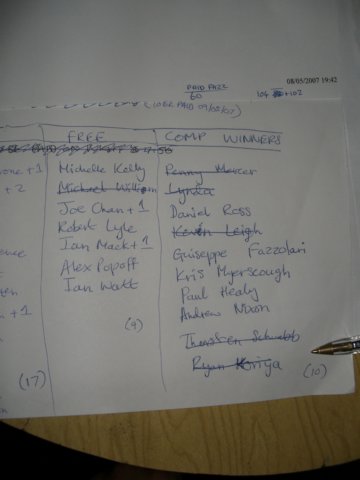 08/05/2007 19:42
PAID PAZZ
60
104 +102
(10ER PAID 09/05/07)
FREE
COMP WINNERS
+1
Michelle Kelly
Penny Mercer
+2
Michael William
Lynda
Joe Chan +1
Daniel Ross
Robert Lyle
Kevin Leigh
Ian Mack +1
Guiseppe Fazzolari
Alex Popoff
Kris Myerscough
Ian Watt
Paul Healy
+1
Andrew Nixon
(9)
Thorsten
Ryan Koriya
(17)
(10)